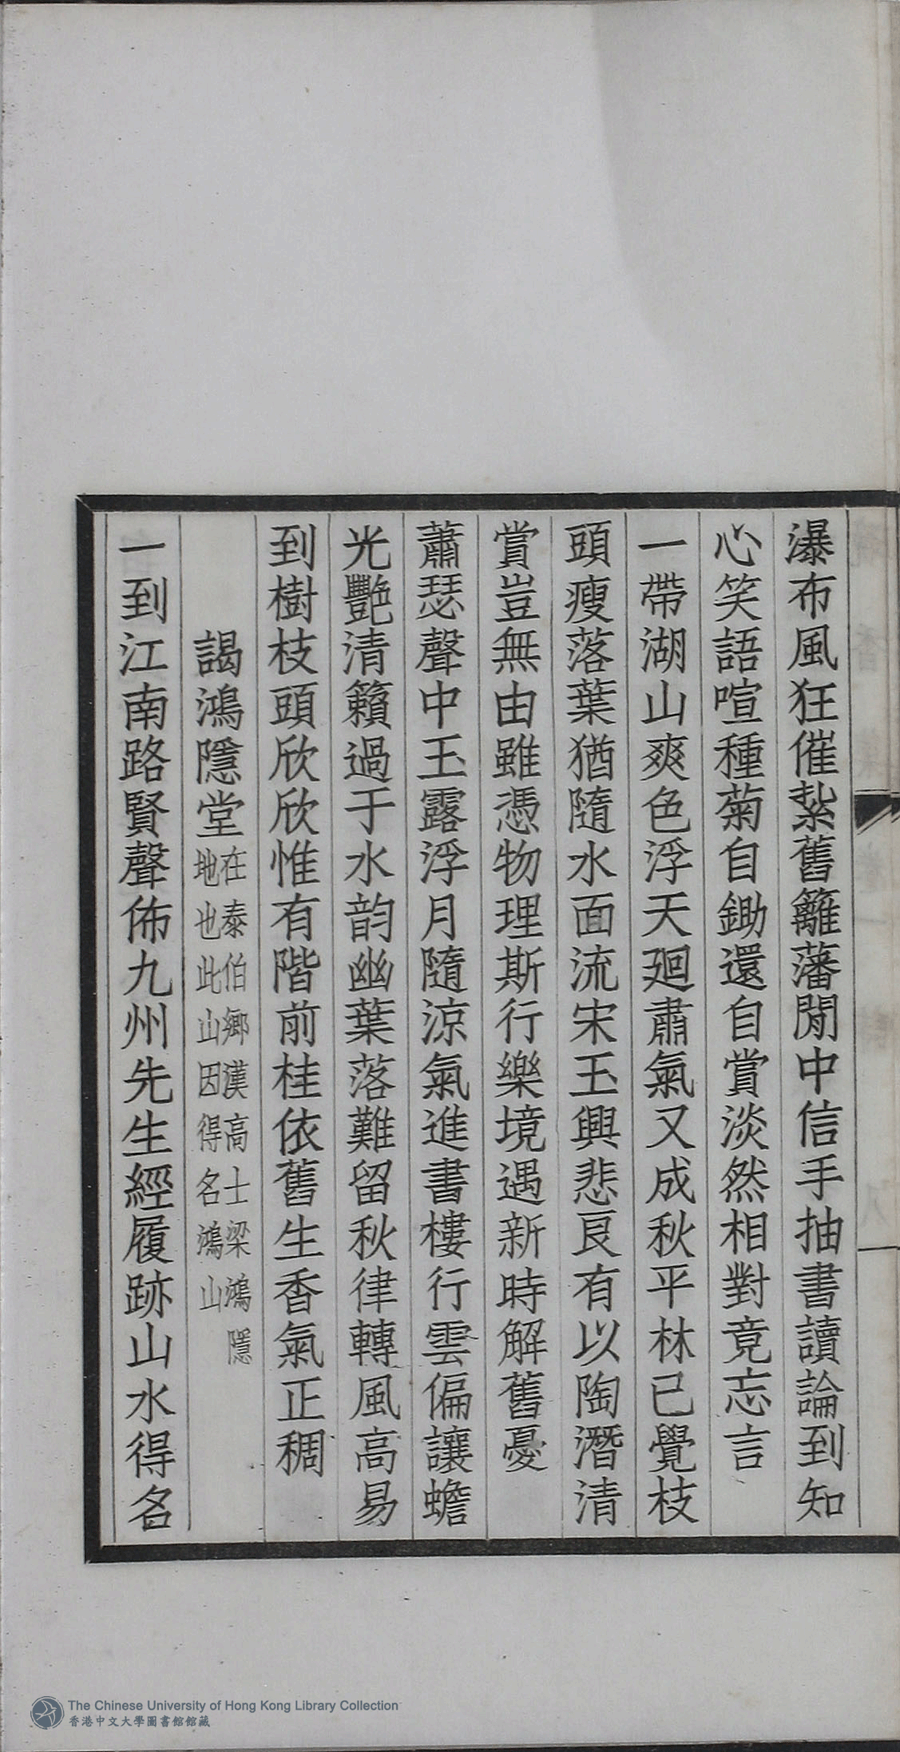 瀑布風狂催紮舊籬藩閒中信手抽書讀論到知
心笑語喧種菊自鋤還自賞淡然相對竟忘言
一帶湖山爽色浮天廻肅氣又成秋平林已覺枝
頭瘦落葉猶隨水面流宋玉興悲良有以陶潛清
賞豈無由雖憑物理斯行樂境遇新時解舊憂
蕭瑟聲中玉露浮月隨涼氣進書樓行雲偏讓蟾
光艷清籟過于水韵幽葉落難留秋律轉風高易
到樹枝頭欣欣惟有階前桂依舊生香氣正稠
謁鴻隱堂在泰伯鄉漢高士梁鴻隱
地也此山因得名鴻山
一到江南路賢聲佈九州先生經履跡山水得名
The Chinese University of Hong Kong Library Collection
香港中文大學圖書館館藏